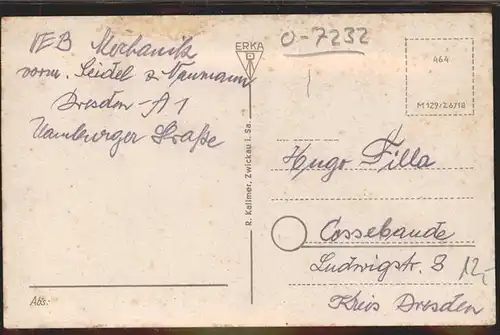 VEB Mechanik
vorm. Seidel & Naumann
Dresden-A 1
Hamburger Straße
ERKA
O-7232
464
M129/26/18
R. Kallmer, Zwickau i. Sa.
Hugo Filla
Cossebaude
Ludwigstr. 8
12,-
Kreis Dresden
Abs.: